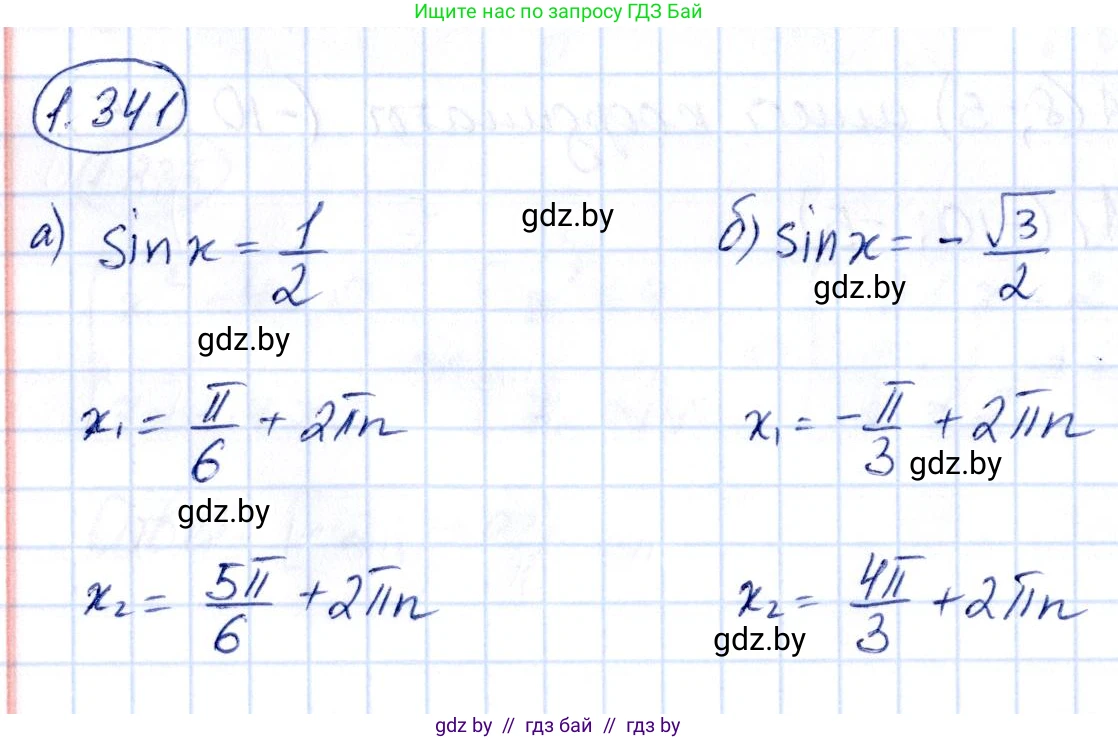 Ищите нас по запросу ГДЗ Бай
1.341
а) sin x = 1/2
gdz.by
б) sin x = - √3/2
gdz.by
gdz.by
x₁ = π/6 + 2πn
x₁ = - π/3 + 2πn
gdz.by
gdz.by
x₂ = 5π/6 + 2πn
x₂ = 4π/3 + 2πn
gdz.by
gdz.by // гдз бай // гдз by